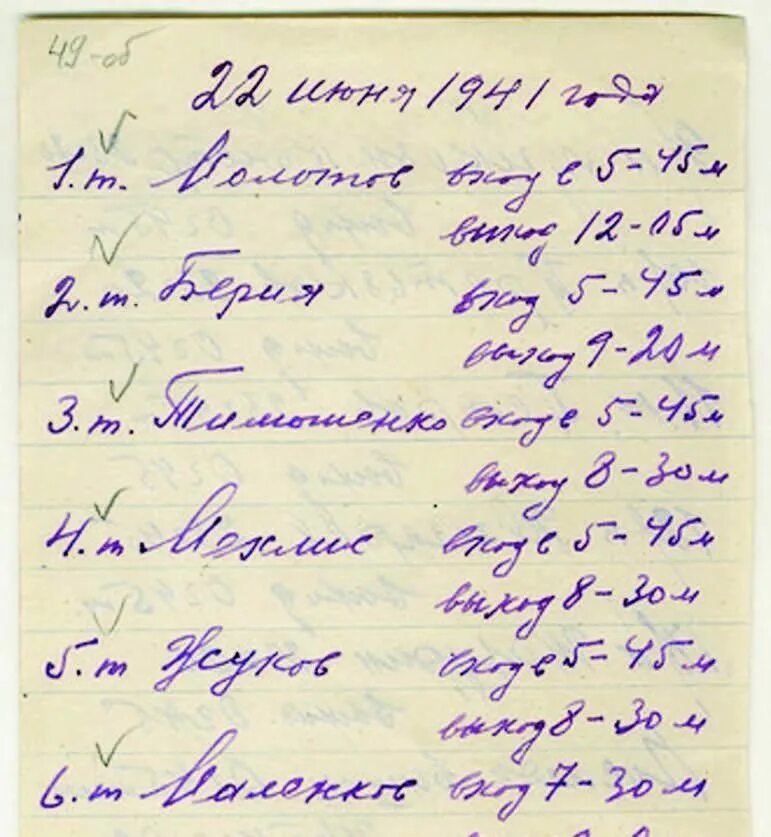 49-об
22 июня 1941 года
1. т. Молотов вход в 5-45м
выход 12-05м
2. т. Берия вход 5-45м
выход 9-20м
3. т. Тимошенко вход в 5-45м
выход 8-30м
4. т Мехлис вход в 5-45м
выход 8-30м
5. т Жуков вход в 5-45м
выход 8-30м
6. т Маленков вход 7-30м